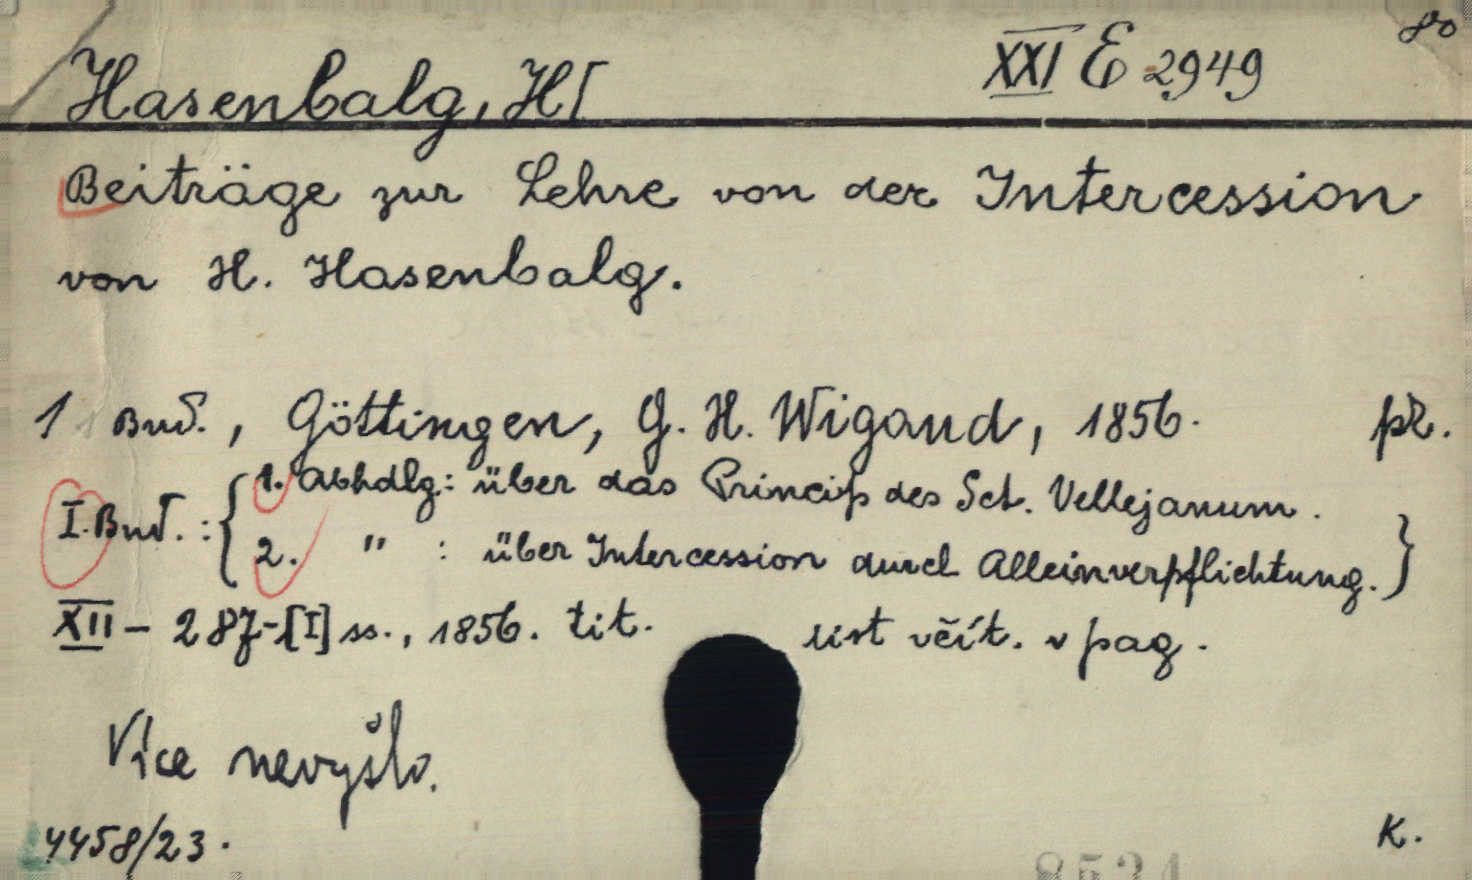 XXI E 2949
8o
Hasenbalg, H[
Beiträge zur Lehre von der Intercession
von H. Hasenbalg.
1 Bnd., Göttingen, G. H. Wigand, 1856. pz.
I. Bnd.: { 1. Abhdlg: über das Princip des Sct. Vellejanum.
2. " : über Intercession durch Alleinverpflichtung. }
XII - 287-[I] ss., 1856. tit. list včít. v pag.
Více nevyšlo.
4458/23. K.
8534